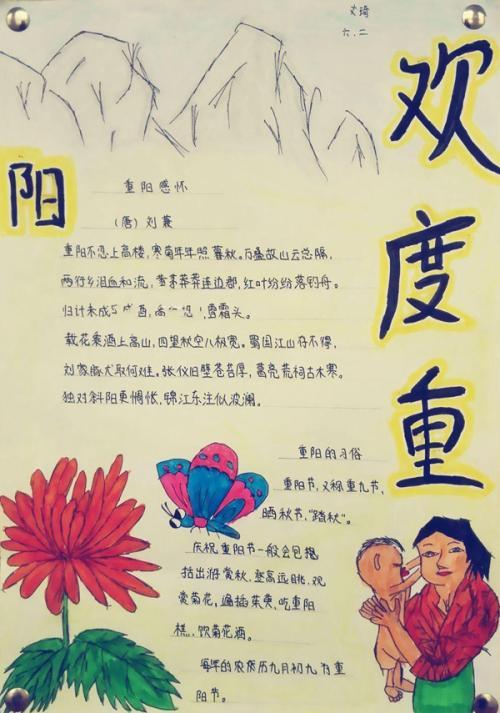 文琦
六.二
欢度重
阳
重阳感怀
(唐) 刘兼
重阳不忍上高楼,寒菊年年照暮秋。万叠故山云总隔,
两行乡泪血和流。黄茅莽莽连边郡,红叶纷纷落钓舟。
归计未成年 酒,雪霜头。
载花乘酒上高山,四望秋空八极宽。蜀国江山存不得,
刘家豚犬取何难。张仪旧壁苍苔厚,葛亮荒祠古木寒。
独对斜阳更惆怅,锦江东注似波澜。
重阳的习俗
重阳节,又称重九节、
晒秋节、"踏秋"。
庆祝重阳节一般会包括
括出游赏秋、登高远眺、观
赏菊花、遍插茱萸、吃重阳
糕、饮菊花酒。
每年的农历九月初九为重
阳节。